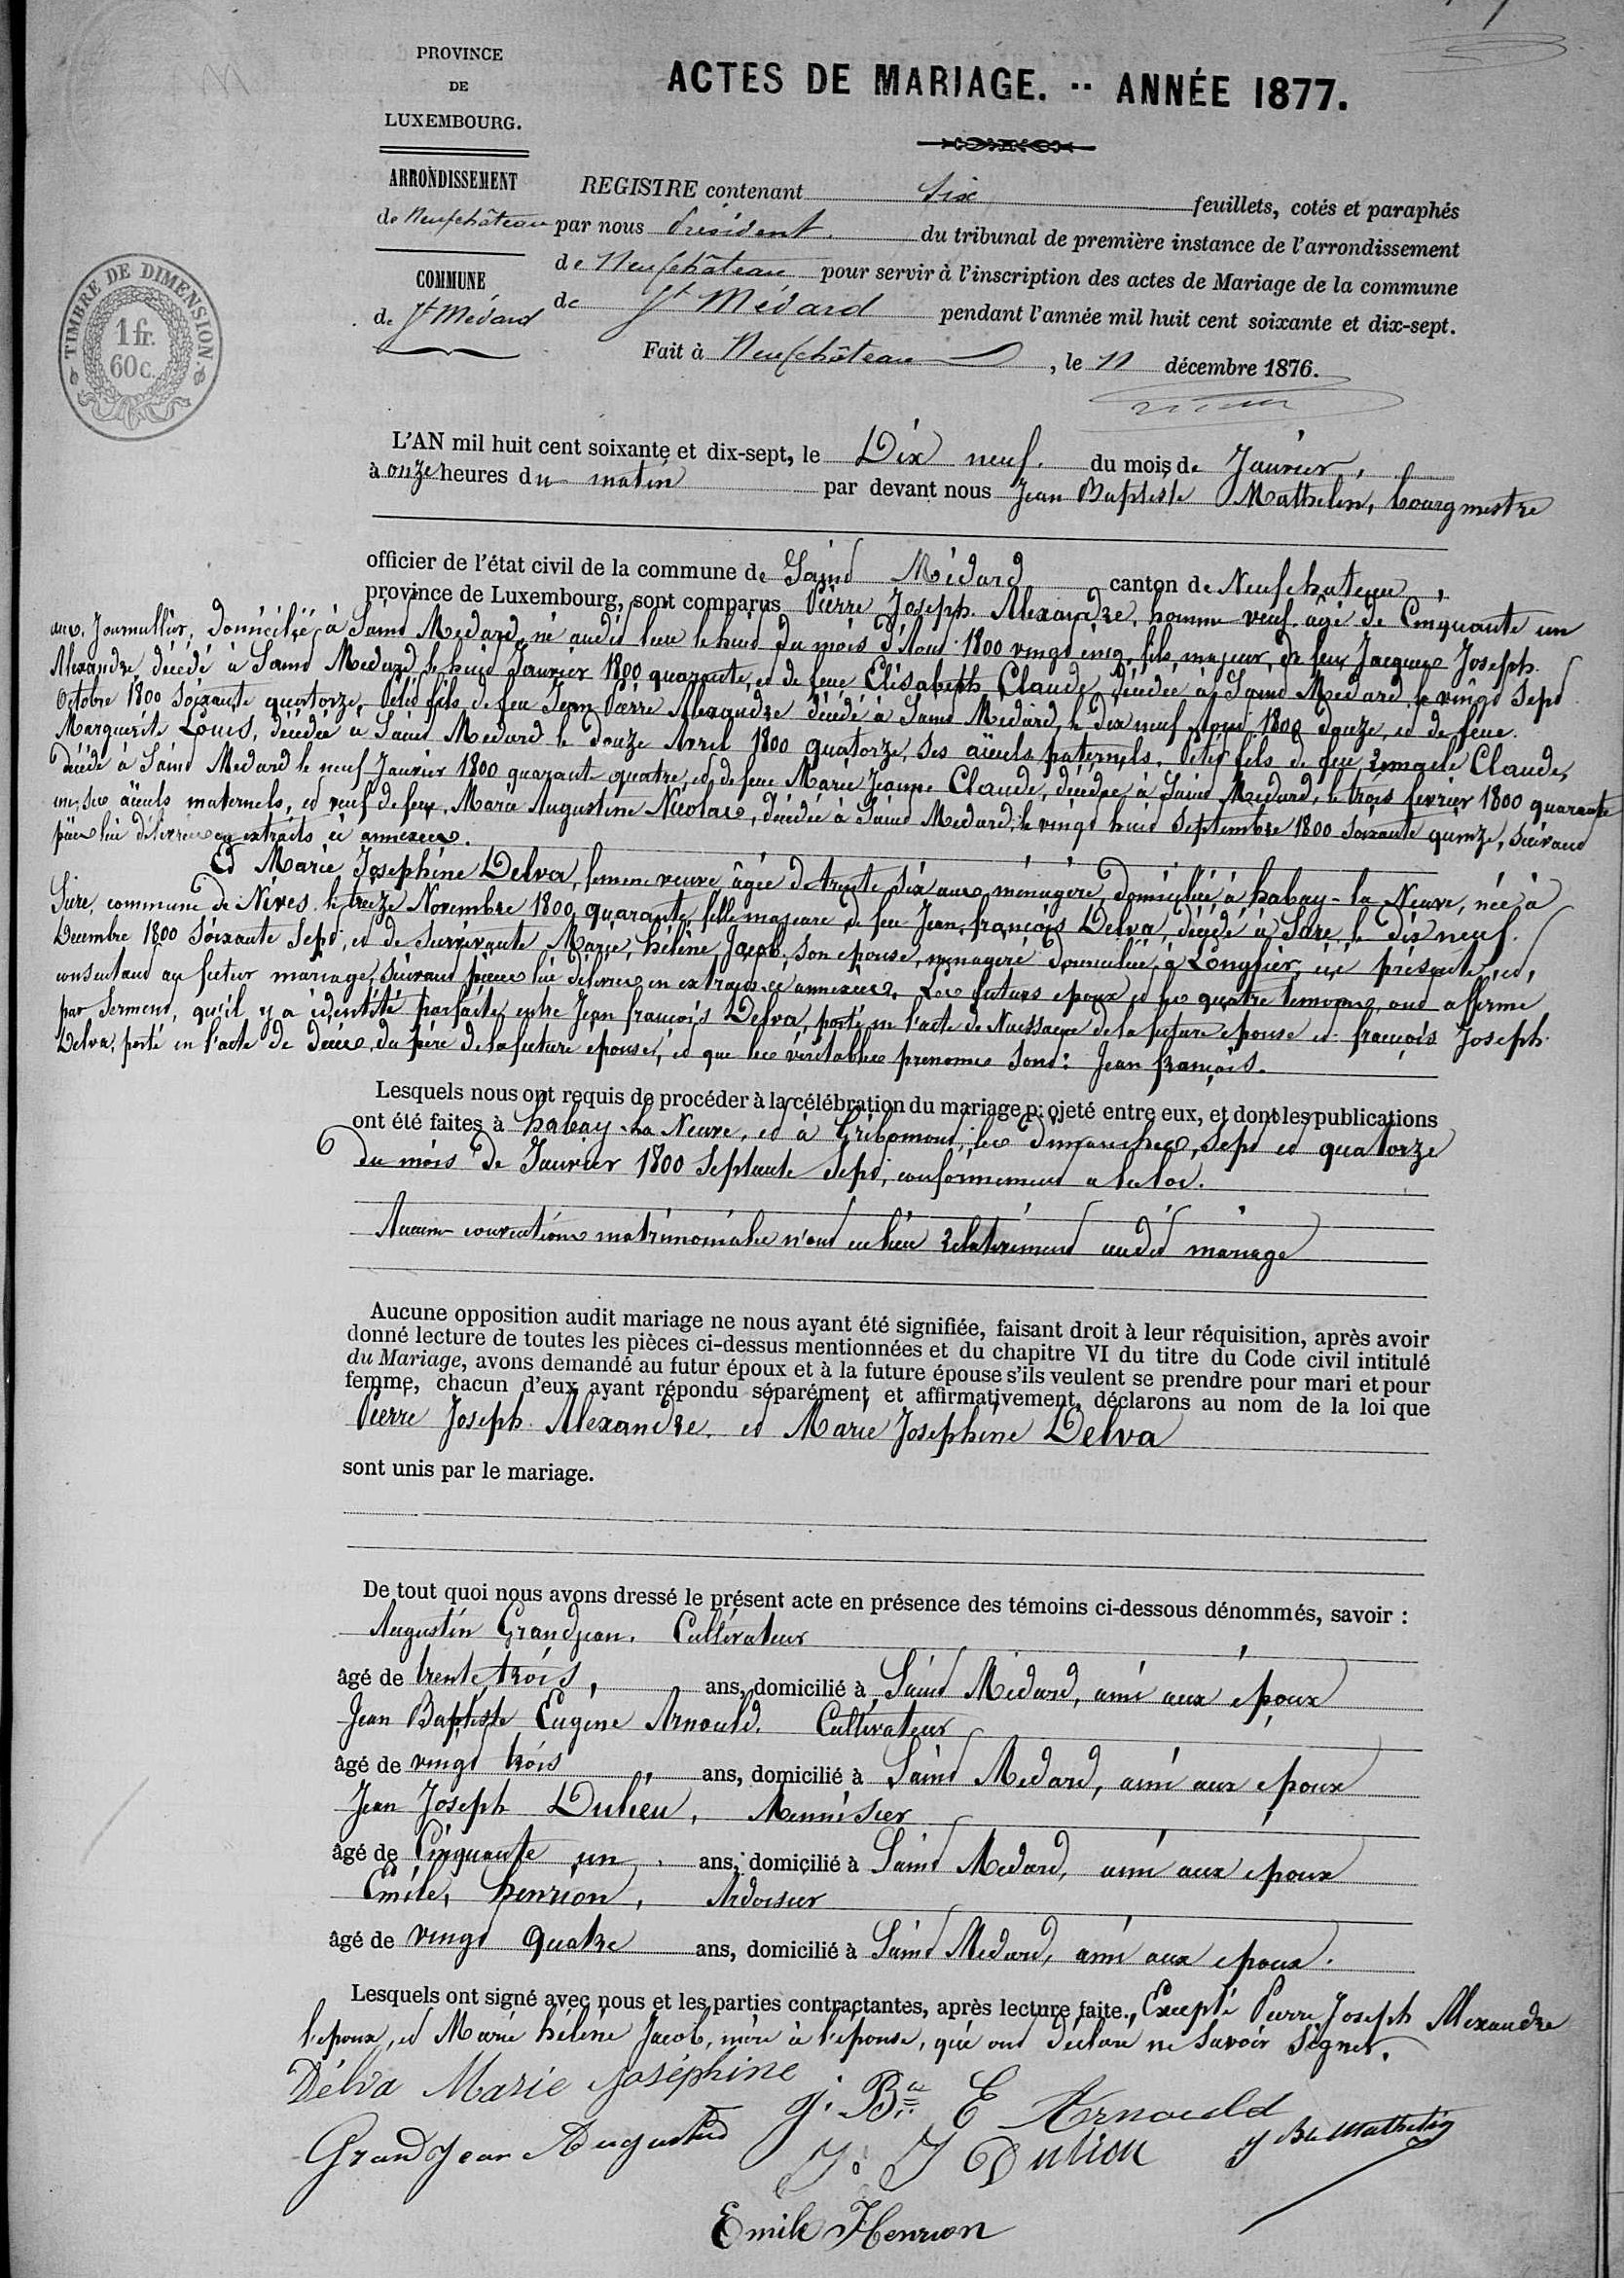 PROVINCE
DE
LUXEMBOURG.
ARRONDISSEMENT
de Neufchâteau
COMMUNE
de St Médard
TIMBRE DE DIMENSION
1 fr.
60 c.
ACTES DE MARIAGE. -- ANNÉE 1877.
REGISTRE contenant six feuillets, cotés et paraphés
par nous Président du tribunal de première instance de l'arrondissement
de Neufchâteau pour servir à l'inscription des actes de Mariage de la commune
de St Médard pendant l'année mil huit cent soixante et dix-sept.
Fait à Neufchâteau, le 11 décembre 1876.
L'AN mil huit cent soixante et dix-sept, le Dix neuf. du mois de Janvier,
à onze heures du matin par devant nous Jean Baptiste Mathelin, bourgmestre
officier de l'état civil de la commune de Saind Médard canton de Neufchateau,
province de Luxembourg, sont comparus Pierre Joseph Alexandre, homme veuf âgé de Cinquante un
ans, Journallier, domicilié à Saind Medard, né audid lieu le huid du mois d'Aoud 1800 vingd cinq, fils majeur de feu Jacques Joseph
Alexandre, décédé à Saind Medard, le huid Janvier 1800 quarante, ed de feue Elisabeth Claude décédée à Saind Medard le vingd sepd
Octobre 1800 Soixante quatorze, Petid fils de feu Jean Pierre Alexandre décédé à Saind Medard, le dix neuf Aoud 1800 douze, ed de feue
Marguerite Louis, décédée à Saind Medard le douze Avril 1800 quatorze, ses äieuls paternels. Petid fils de feu Remacle Claude,
décédé à Saind Medard le neuf Janvier 1800 quarante quatre, ed de feue Marie Jeanne Claude, décédée à Saind Medard, le trois fevrier 1800 quarante
un, ses äieuls maternels, ed veuf de feue Marie Augustine Nicolas, décédée à Saind Medard, le vingd huid Septembre 1800 Soixante quinze, suivand
pièces lui délivrées en extraits ci annexées.
Ed Marie Josephine Delva, femme veuve, âgée de trente six ans, ménagère, domiciliée à habay-la Neuve, née à
Sûre, commune de Nives le treize Novembre 1800 quarante, fille majeure de feu Jean françois Delva, décédé à Sûre, le dix neuf
Decembre 1800 Soixante Sepd, ed de Survivante Marie hélène Jacob, son epouse, menagère domiciliée à Longlier, ici présente, ed,
consentand au futur mariage, suivant pièces lui délivrées en extraits ci annexées. Les futurs epoux ed les quatre temoins, ond affirmé
par Sermend, qu'il y a identité parfaite entre Jean francois Delva, porté en l'acte de Naissance de la future epouse ed françois Joseph
Delva, porté en l'acte de Décès du père de la future epouse, ed que les véritables prenoms sond: Jean François.
Lesquels nous ont requis de procéder à la célébration du mariage projeté entre eux, et dont les publications
ont été faites à habay-la Neuve, ed à Gribomond, les dimanches, sepd ed quatorze
du mois de Janvier 1800 Septante Sepd, conformemend a la loi.
Aucune conventions matrimoniales n'ond eu lieu relativemend audid mariage
Aucune opposition audit mariage ne nous ayant été signifiée, faisant droit à leur réquisition, après avoir
donné lecture de toutes les pièces ci-dessus mentionnées et du chapitre VI du titre du Code civil intitulé
du Mariage, avons demandé au futur époux et à la future épouse s'ils veulent se prendre pour mari et pour
femme, chacun d'eux ayant répondu séparément et affirmativement, déclarons au nom de la loi que
Pierre Joseph Alexandre, ed Marie Josephine Delva
sont unis par le mariage.
De tout quoi nous avons dressé le présent acte en présence des témoins ci-dessous dénommés, savoir :
Augustin Grandjean. Cultivateur
âgé de trente trois, ans, domicilié à Saind Médard, ami aux epoux
Jean Baptiste Eugène Arnould. Cultivateur
âgé de vingd trois ans, domicilié à Saind Medard, ami aux epoux
Jean Joseph Dulieu, Menuisier
âgé de Cinquante un. ans, domicilié à Saind Medard, ami aux epoux
Emile, henrion, Ardoisier
âgé de vingd quatre ans, domicilié à Saind Medard, ami aux epoux.
Lesquels ont signé avec nous et les parties contractantes, après lecture faite., Excepté Pierre Joseph Alexandre
l'epoux, ed Marie hélène Jacob, mère à l'épouse, qui ond déclaré ne savoir Signer.
Délva Marie Joséphine
J. Bte E Arnould
Grandjean Augustin
J. J Dulieu
J Bte Mathelin
Emile Henrion